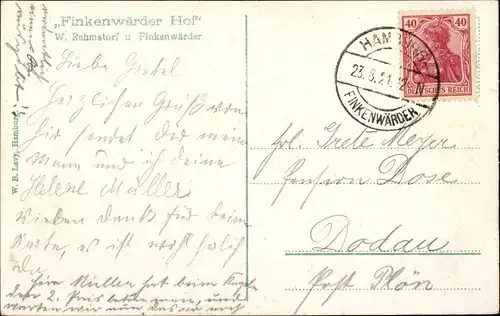 „Finkenwärder Hof"
W. Rahmstorf :: Finkenwärder
Liebe Gretel
Herzlichen Gruß von
hier sendet dir mein
Mann und ich deine
Helene Müller
Vielen Dank für deine
Karte, es ist noch
Müller hat beim
den 2. Preis und
W. B. Levy, Hamburg
40 40
DEUTSCHES REICH
HAMBURG
23.8.21.
FINKENWÄRDER
Frl. Grete Meyer
Pension Dose
Dodau
Post Plön